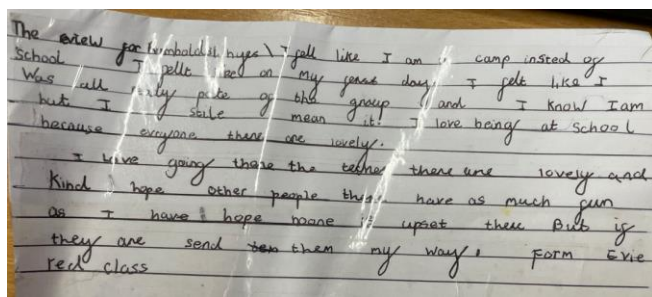 The eview for humboldt hyes \ I fell like I am camp insted of
School I fellt like on my ferst day. I felt like I
Was all redy parte of the group and I know I am
but I stile mean it! I love being at school
because everyone there are lovely.
I love going there the techer there are lovely and
Kind hope other people there have as much fun
as I have hope noone is upset there But if
they are send them my way. Form Evie
red class